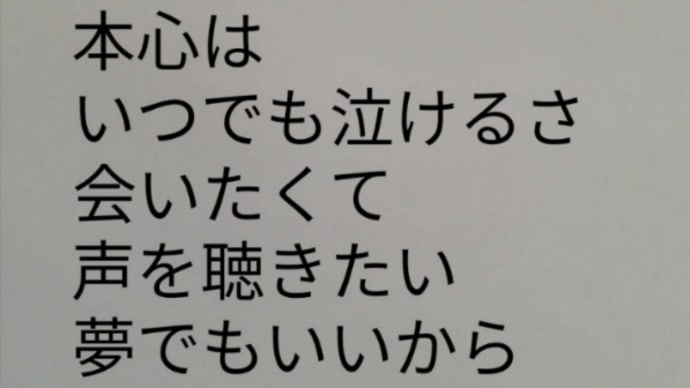 本心は
いつでも泣けるさ
会いたくて
声を聴きたい
夢でもいいから